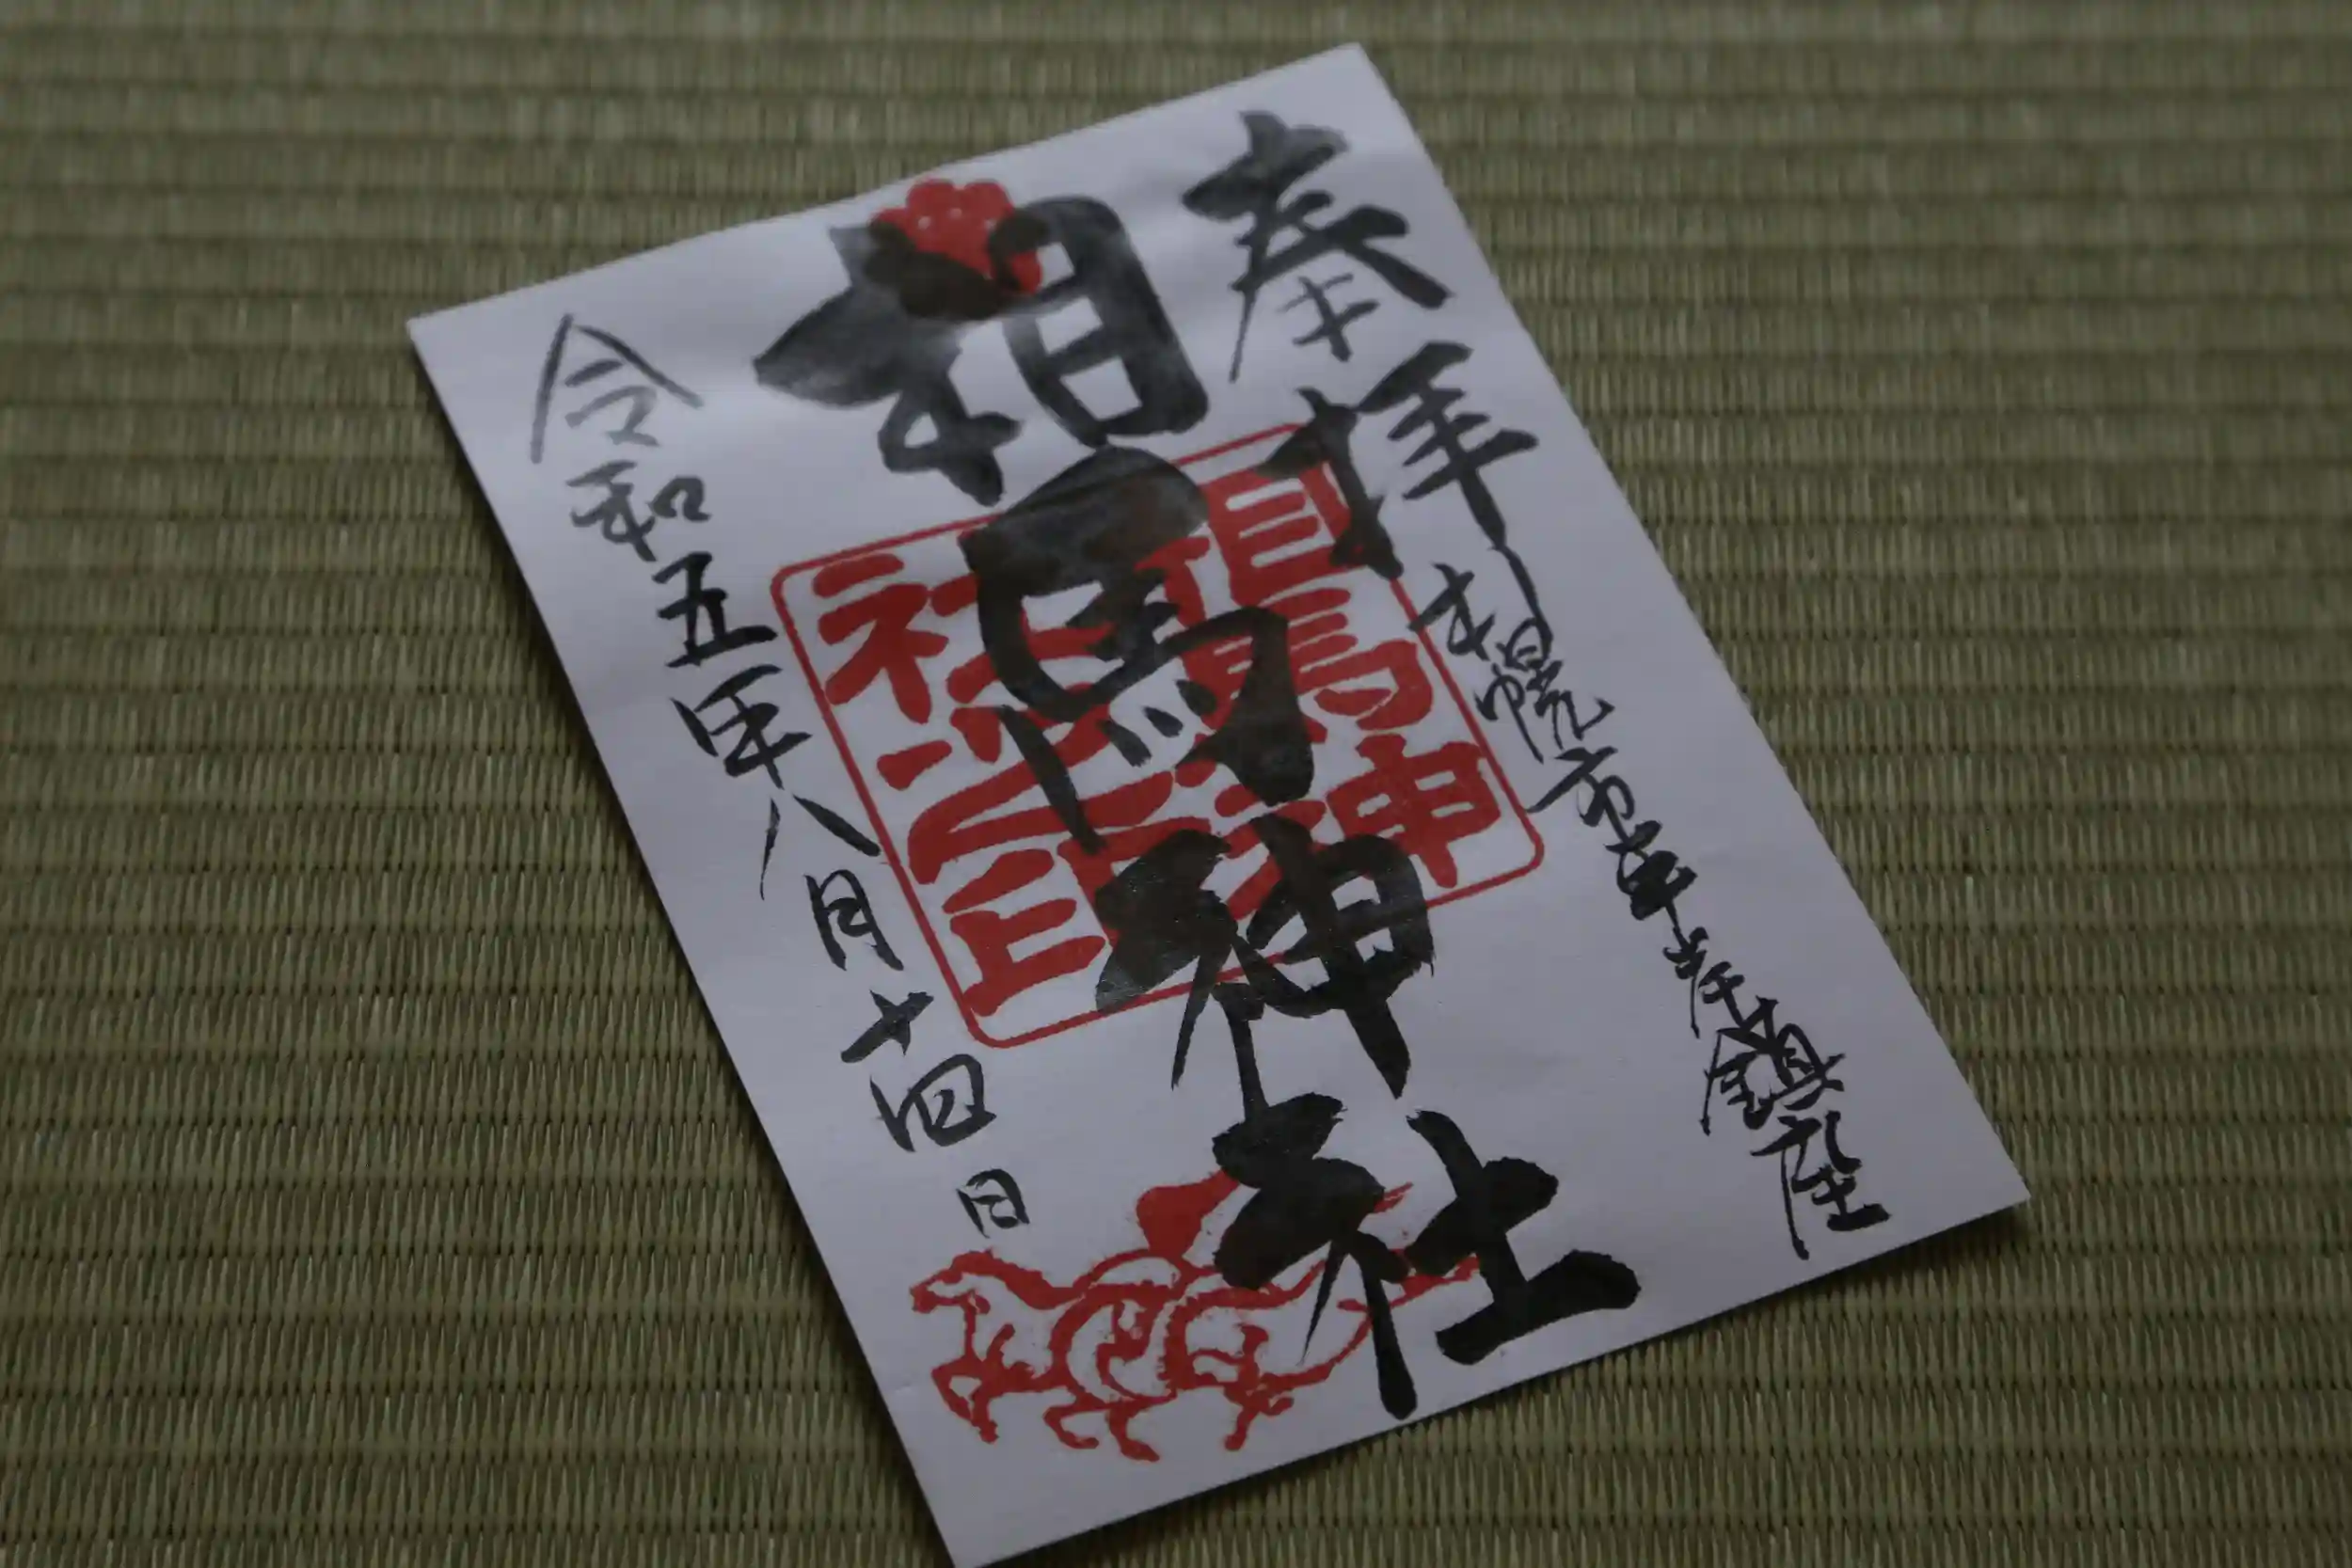 奉拝
札幌市東岸鎮座
相馬神社
相馬神社之印
令和五年八月十四日